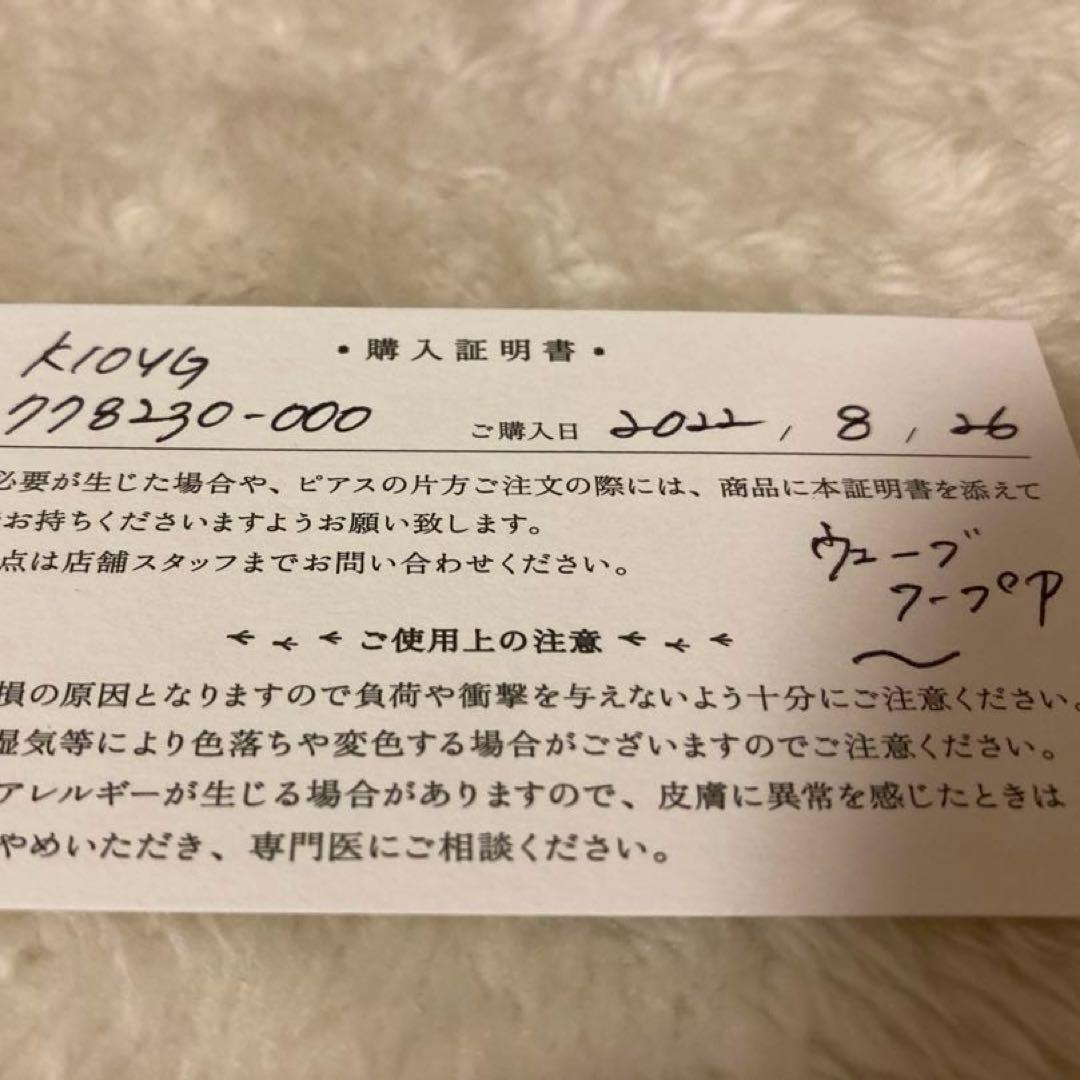 K10YG
・購入証明書・
778230-000 ご購入日 2022 , 8 , 26
必要が生じた場合や、ピアスの片方ご注文の際には、商品に本証明書を添えて
お持ちくださいますようお願い致します。
点は店舗スタッフまでお問い合わせください。
ウェーブ
フープP
ご使用上の注意
損の原因となりますので負荷や衝撃を与えないよう十分にご注意ください。
湿気等により色落ちや変色する場合がございますのでご注意ください。
アレルギーが生じる場合がありますので、皮膚に異常を感じたときは
やめいただき、専門医にご相談ください。